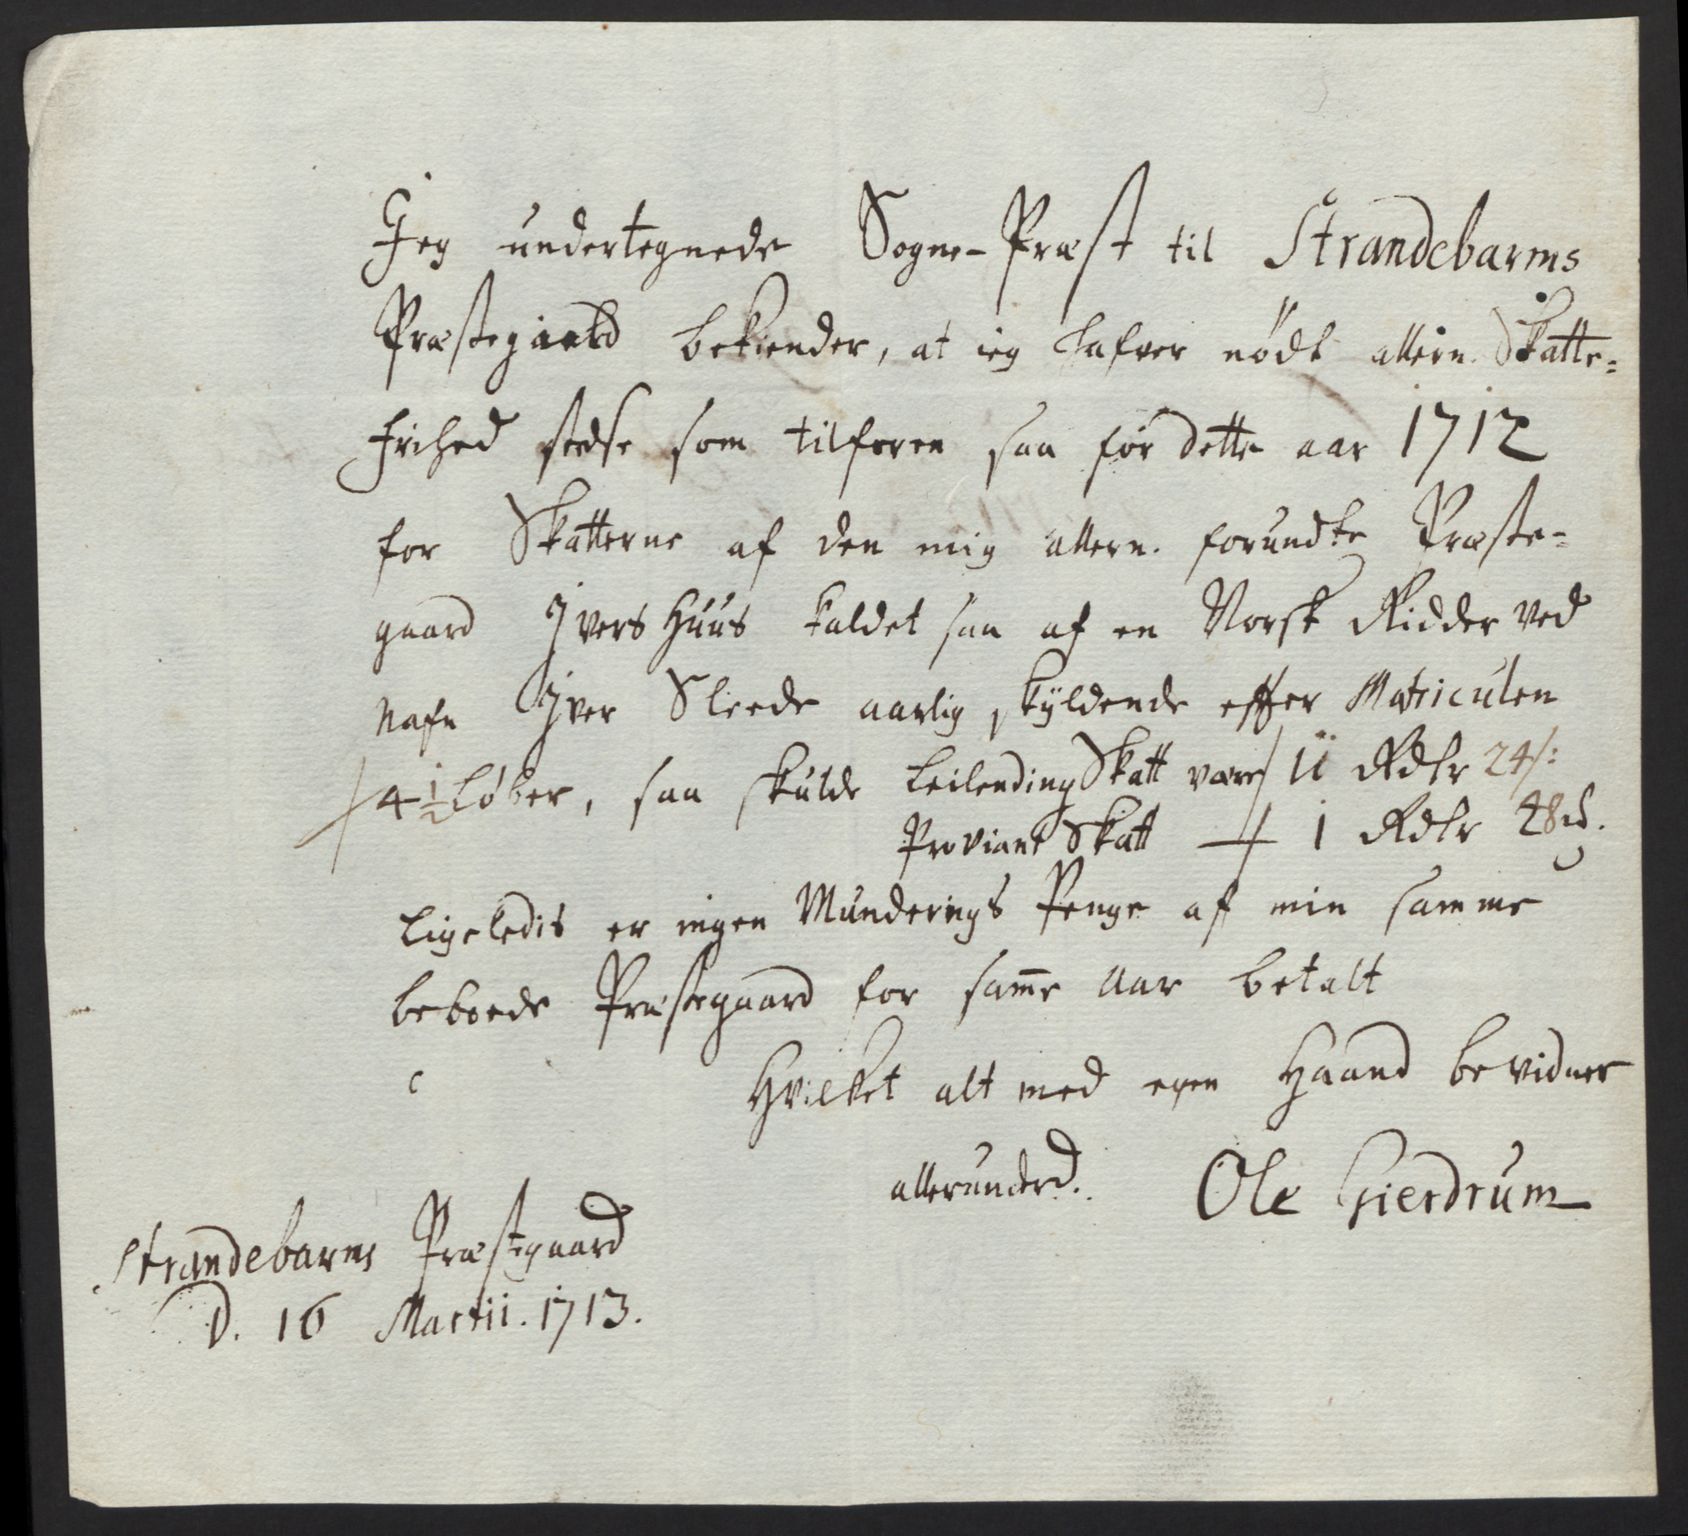 Jeg undertegnede Sogne-Præst til Strandebarms
Præstegield bekiender, at ieg hafver nødt allern. Skatte=
frihed stedse som tilforen saa for dette aar 1712
for Skatterne af den mig allern. forundte Præste-
gaard Jvers Huus kaldet saa af en Norsk Ridder ved
Nafn Jver Sleede aarlig skyldende effter Matriculen
4½ Løber, saa skulde Leilending Skatt være 11 Rdlr 24 s:
Proviant Skatt – 1 Rdlr 48 s.
Ligeledis er ingen Munderings Penge af min samme
beboede Præstegaard for sam̄e Aar betalt
Hvilket alt med egen Haand bevidner
allerunderd. Ole Gierdrum
Strandebarms Præstegaard
D. 16 Martii. 1713.